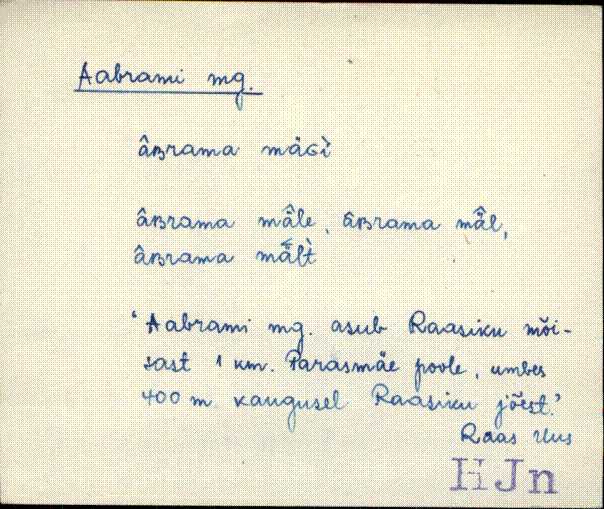 Aabrami mg.
âʙrama mäɢì
âʙrama mä̂le, âʙrama mä̂l,
âʙrama mä̂lt̀
‘Aabrami mg. asub Raasiku mõi-
sast 1 km. Parasmäe poole, umbes
400 m kaugusel Raasiku jõest.’
Raas Uus
HJn